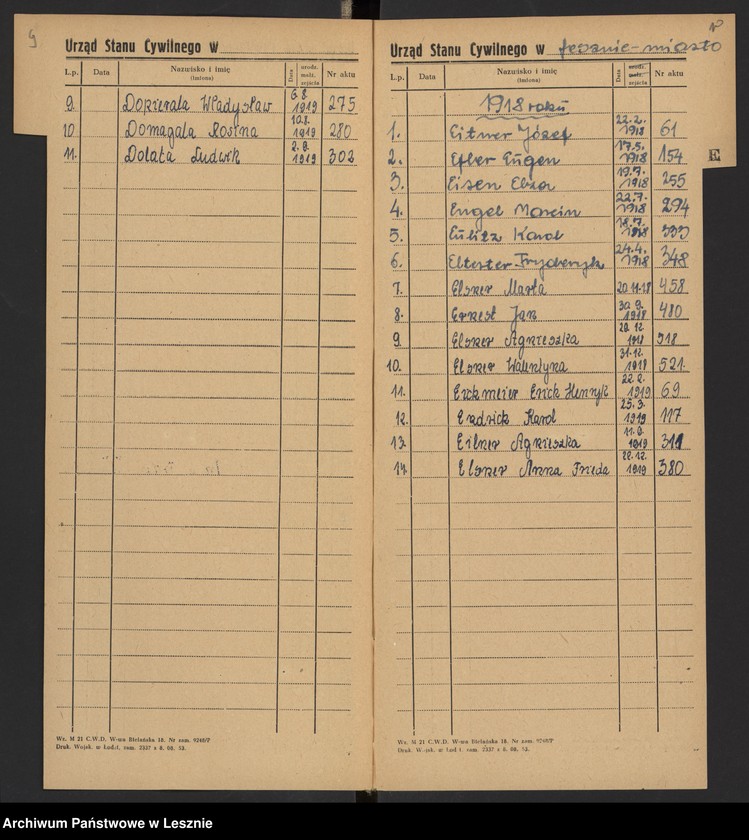 9
Urząd Stanu Cywilnego w
L.p. Data Nazwisko i imię (imiona) Data urodz. małż. zejścia Nr aktu
9. Dopierała Władysław 6.8. 1919 275
10 Domagała Rosina 1919 280
11. Dolata Ludwik 2.9. 1919 302
Wz. M 21 C.W.D. W-wa Bielańska 18. Nr zam. 9268/P
Druk. Wojsk. w Łodzi, zam. 2337 z 8. 08. 53.
Urząd Stanu Cywilnego w Lesznie-miasto
L.p. Data Nazwisko i imię (imiona) Data urodz. małż. zejścia Nr aktu
1918 roku
1. Eitner Józef 22.2. 1918 61
2. Efler Eugen 17.5. 1918 154
3. Eisen 19.7. 1918 255
4. Engel Marcin 22.7. 1918 294
5. Karol 1918 333
6. Eltester Fryderyk 24.4. 1918 348
7. Elsner Marta 20.11.18 458
8. Ernest Jan 30.9. 1918 480
9. Elsner Agnieszka 28.12. 1918 518
10. Elsner Walentyna 31.12. 1918 521
11. Erckmeier Erick Henryk 22.2. 1919 69
12. Endrick Karol 25.3. 1919 117
13. Eilner Agnieszka 11.9. 1919 311
14. Elsner Anna Frieda 28.12. 1919 380
E
Wz. M 21 C.W.D. W-wa Bielańska 18. Nr zam. 9268/P
Druk. Wojsk. w Łodzi, zam. 2337 z 8. 08. 53.
Archiwum Państwowe w Lesznie